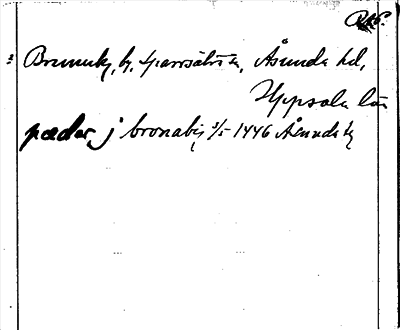 Brunnby, by, Sparrsätra sn, Åsunda hd,
Uppsala län
pædar j bronaby 3/5 1446 Åsunda